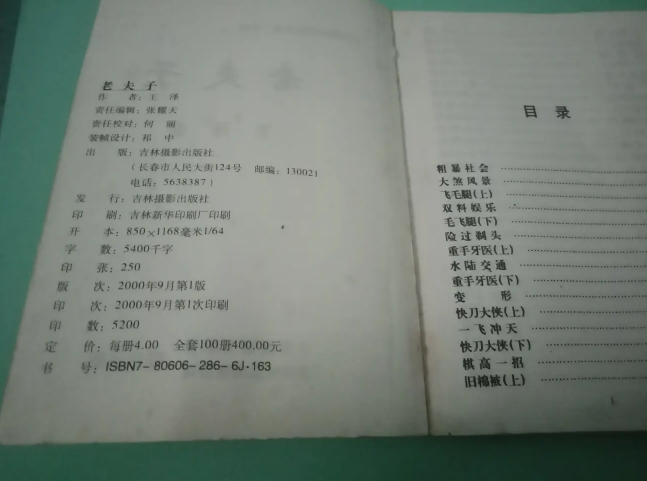 老夫子
作 者：王 泽
责任编辑：张耀天
责任校对：何 丽
装帧设计：祁 中
出 版：吉林摄影出版社
（长春市人民大街124号 邮编：130021
电话：5638387）
发 行：吉林摄影出版社
印 刷：吉林新华印刷厂印刷
开 本：850×1168毫米1/64
字 数：5400千字
印 张：250
版 次：2000年9月第1版
印 次：2000年9月第1次印刷
印 数：5200
定 价：每册4.00 全套100册400.00元
书 号：ISBN7-80606-286-6J·163
目 录
粗暴社会
大煞风景
飞毛腿(上)
双料娱乐
毛飞腿(下)
险过剃头
重手牙医(上)
水陆交通
重手牙医(下)
变 形
快刀大侠(上)
一飞冲天
快刀大侠(下)
棋高一招
旧棉被(上)
1